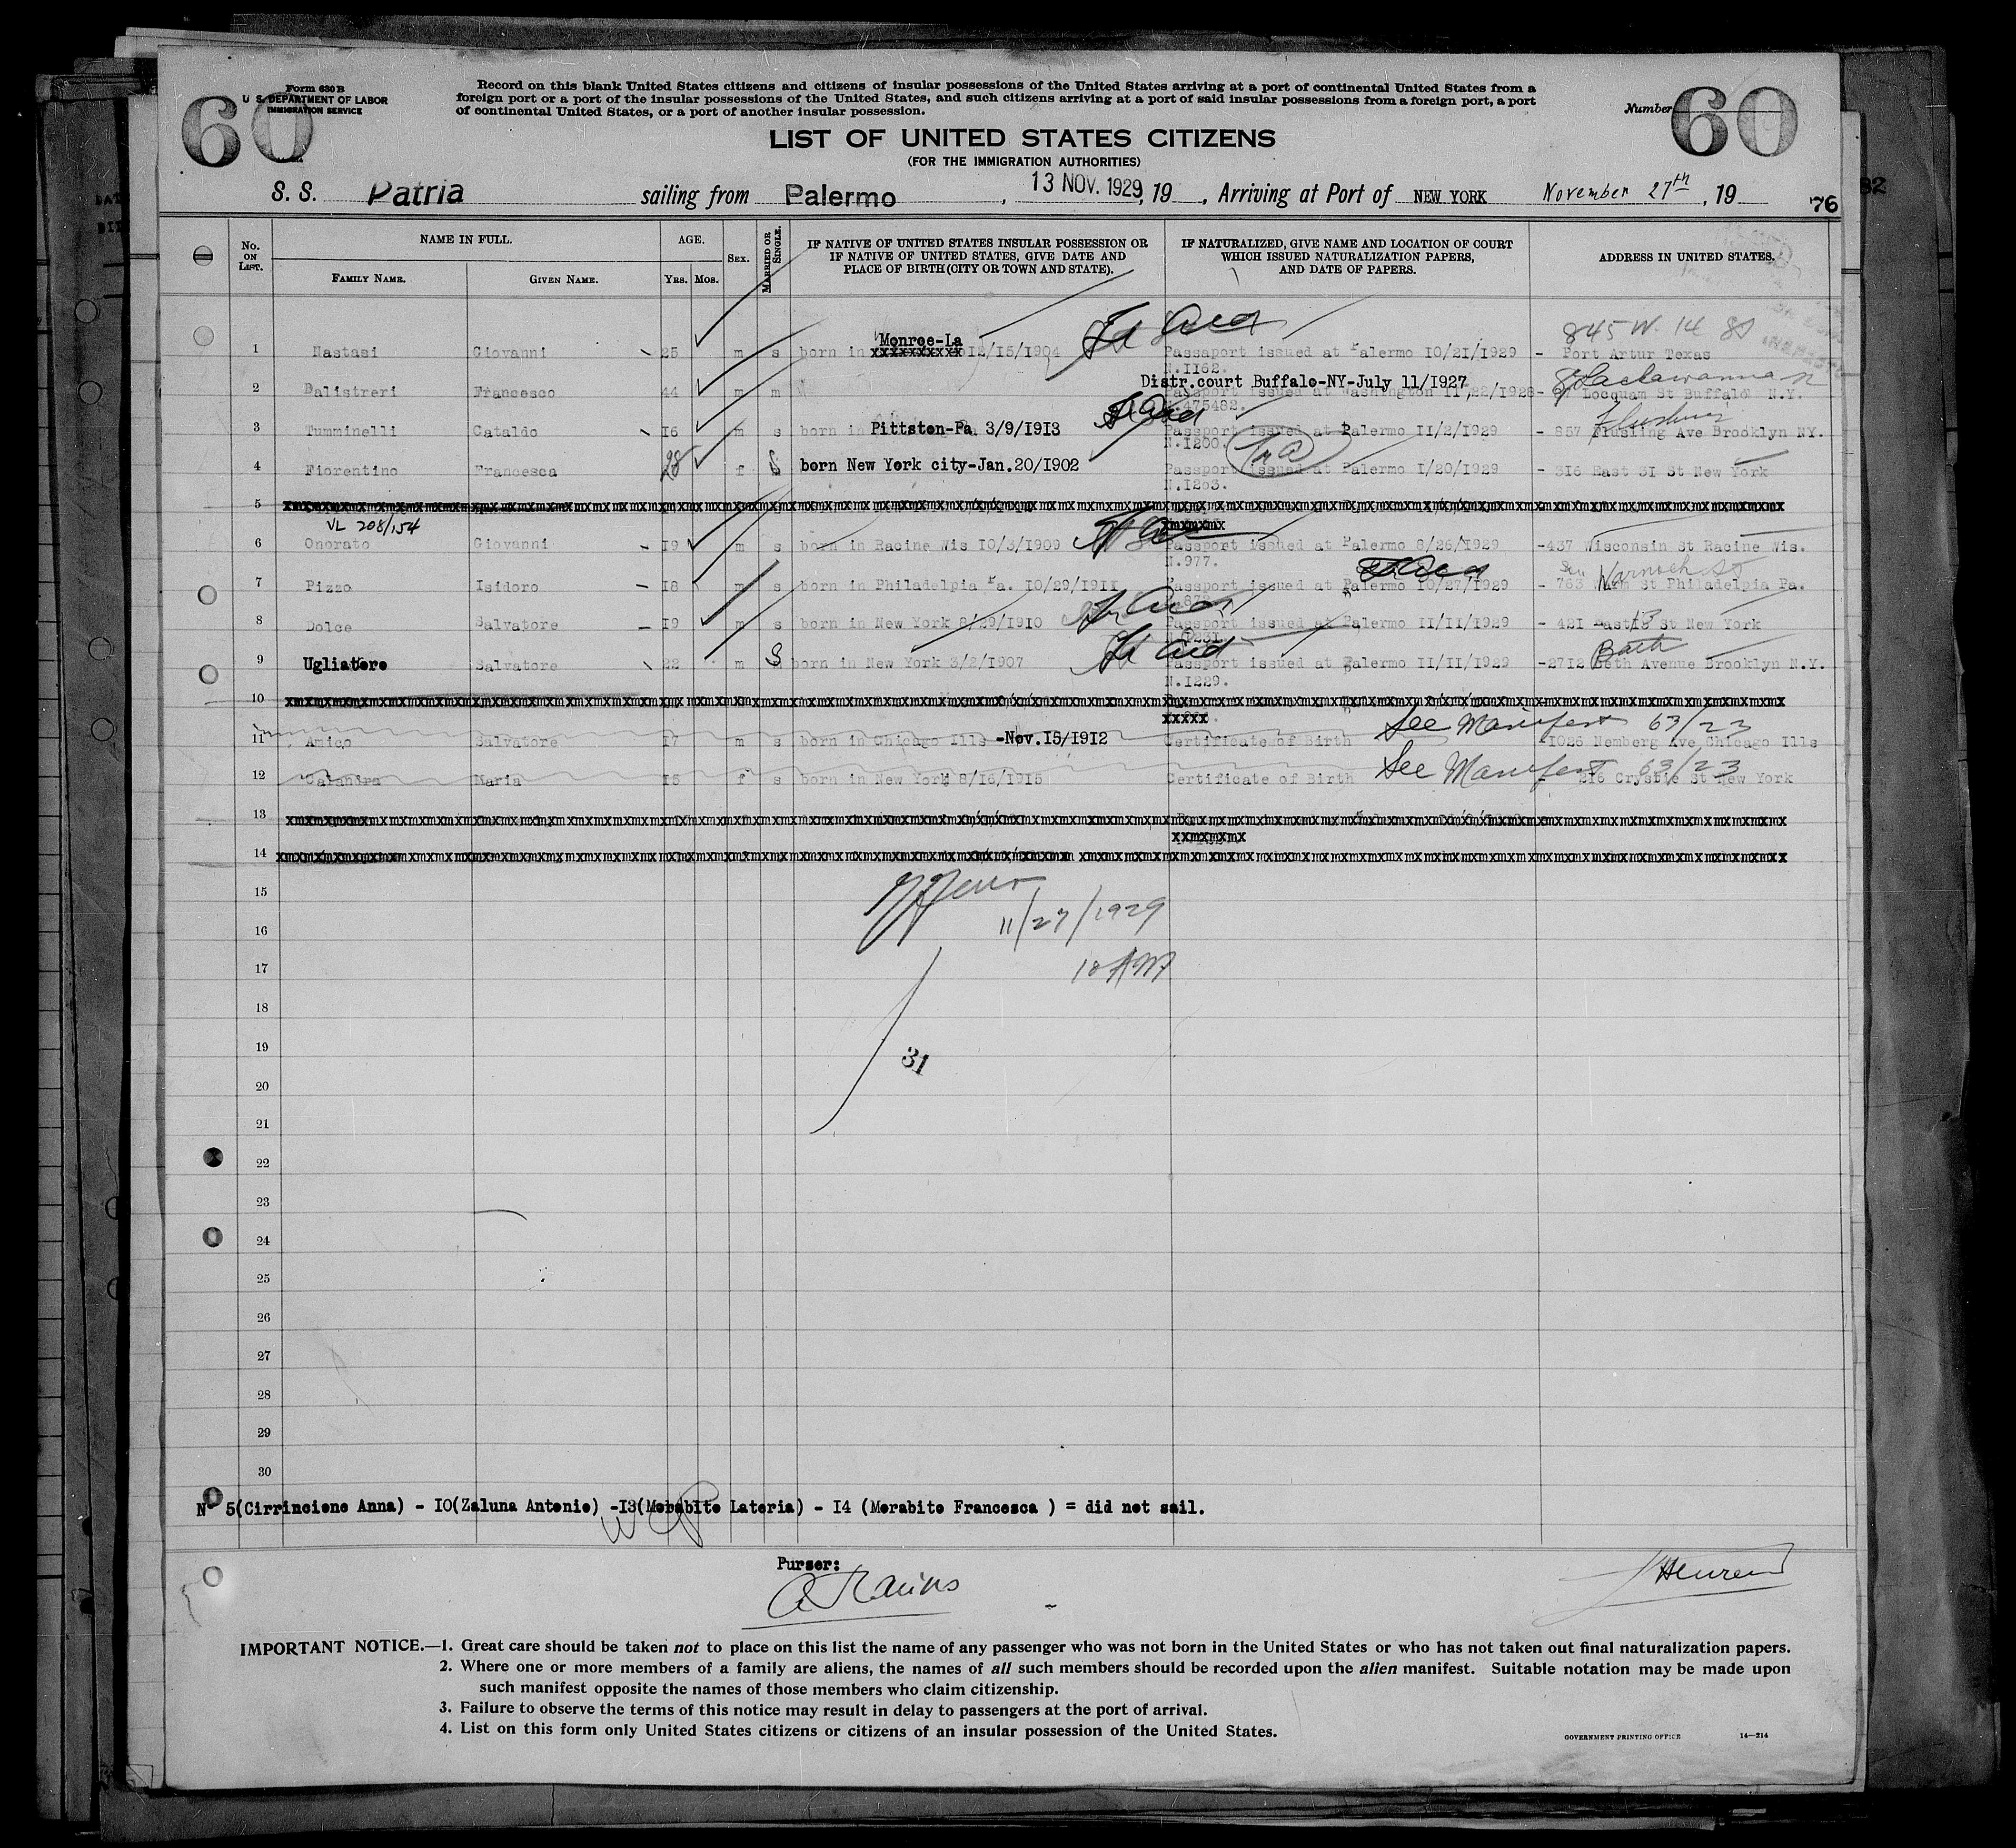 Form 630 B
U. S. DEPARTMENT OF LABOR
IMMIGRATION SERVICE
60
Record on this blank United States citizens and citizens of insular possessions of the United States arriving at a port of continental United States from a
foreign port or a port of the insular possessions of the United States, and such citizens arriving at a port of said insular possessions from a foreign port, a port
of continental United States, or a port of another insular possession.
Number 60
LIST OF UNITED STATES CITIZENS
(FOR THE IMMIGRATION AUTHORITIES)
S. S. Patria sailing from Palermo, 13 NOV. 1929, 19 , Arriving at Port of NEW YORK November 27th, 19
76
82
No. ON LIST.
NAME IN FULL.
FAMILY NAME. GIVEN NAME.
AGE.
YRS. MOS.
SEX.
MARRIED OR SINGLE.
IF NATIVE OF UNITED STATES INSULAR POSSESSION OR
IF NATIVE OF UNITED STATES, GIVE DATE AND
PLACE OF BIRTH (CITY OR TOWN AND STATE).
IF NATURALIZED, GIVE NAME AND LOCATION OF COURT
WHICH ISSUED NATURALIZATION PAPERS,
AND DATE OF PAPERS.
ADDRESS IN UNITED STATES.
Monroe-La 845 W. 14 St
1 Nastasi Giovanni 25 m s born in 12/15/1904 Passaport issued at Palermo 10/21/1929 - Port Artur Texas
N.1162.
Distr.court Buffalo-NY-July 11/1927 Lackawanna
2 Balistreri Francesco 44 m m Passport issued at Washington 11,22/1928- Locquam St Buffalo N.Y.
N.475482.
Flushing
3 Tumminelli Cataldo 16 m s born in Pittston-Pa. 3/9/1913 Passport issued at Palermo 11/2/1929 - 857 Flusiing Ave Brooklyn NY.
N.1200.
4 Fiorentino Francesca 28 f S born New York city-Jan.20/1902 Passport issued at Palermo 1/20/1929 - 316 East 31 St New York
N.1263.
5
VL 208/154
6 Onorato Giovanni - 19 m s born in Racine Wis 10/3/1909 Passport issued at Palermo 8/26/1929 -437 Wisconsin St Racine Wis.
N.977.
Warnock St
7 Pizzo Isidoro - 18 m s born in Philadelpia Pa. 10/29/1911 Passport issued at Palermo 10/27/1929 - 763 St Philadelpia Pa.
8 Dolce Salvatore - 19 m s born in New York 8/29/1910 Passport issued at Palermo 11/11/1929 - 421 East 13 St New York
N.1231.
Bath
9 Ugliatore Salvatore 22 m S born in New York 3/2/1907 Passport issued at Palermo 11/11/1929 -2712 Avenue Brooklyn N.Y.
N.1229.
10
See Manifest 63/23
11 Amico Salvatore 17 m s born in Chicago Ills -Nov.15/1912 Certificate of Birth -1026 Nemberg Ave Chicago Ills
See Manifest 63/23
12 Calandra Maria 15 f s born in New York 8/16/1915 Certificate of Birth 216 Crystie St New York
13
14
15
16 11/27/1929
17 10 AM
18
19
31
20
21
22
23
24
25
26
27
28
29
30
N° 5(Cirrincione Anna) - 10(Zaluna Antonio) -13(Morabito Lateria) - 14 (Morabito Francesca ) = did not sail.
Purser:
IMPORTANT NOTICE.—1. Great care should be taken not to place on this list the name of any passenger who was not born in the United States or who has not taken out final naturalization papers.
2. Where one or more members of a family are aliens, the names of all such members should be recorded upon the alien manifest. Suitable notation may be made upon
such manifest opposite the names of those members who claim citizenship.
3. Failure to observe the terms of this notice may result in delay to passengers at the port of arrival.
4. List on this form only United States citizens or citizens of an insular possession of the United States.
GOVERNMENT PRINTING OFFICE 14—214